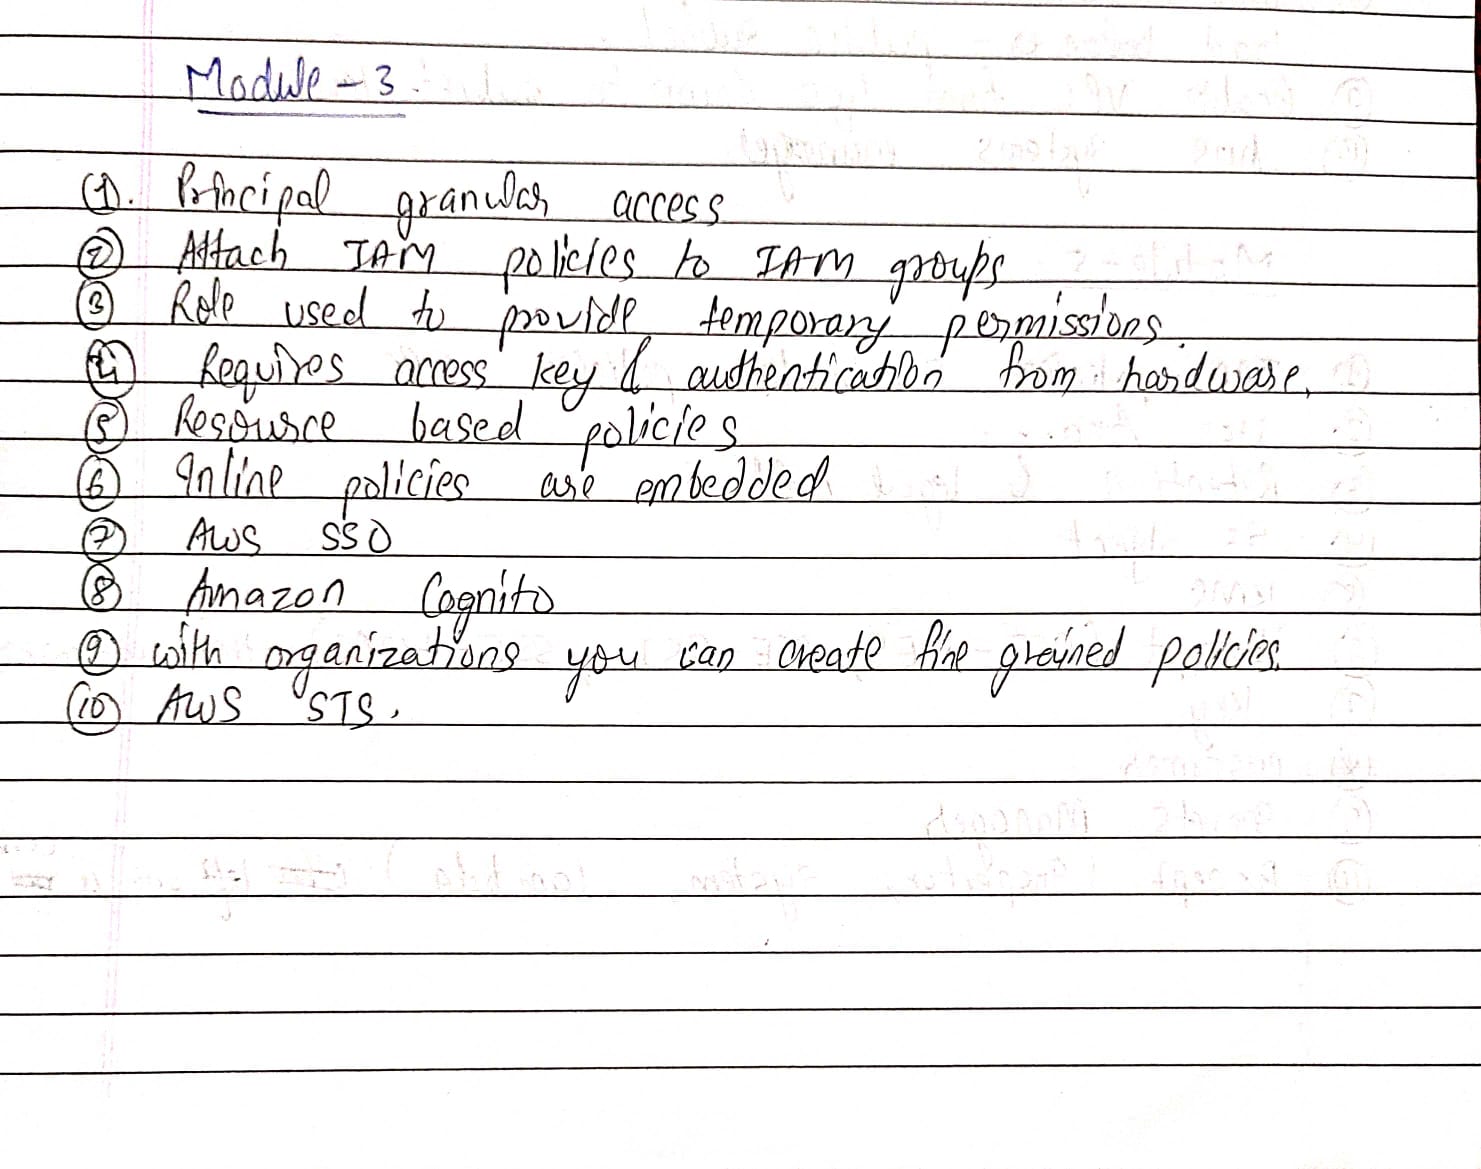 Module - 3.
(1). Principal granular access
(2) Attach IAM policies to IAM groups
(3) Role used to provide temporary permissions.
(4) Requires access key & authentication from hardware.
(5) Resource based policies
(6) Inline policies are embedded
(7) AWS SSO
(8) Amazon Cognito
(9) with organizations you can create fine greined policies.
(10) AWS STS.